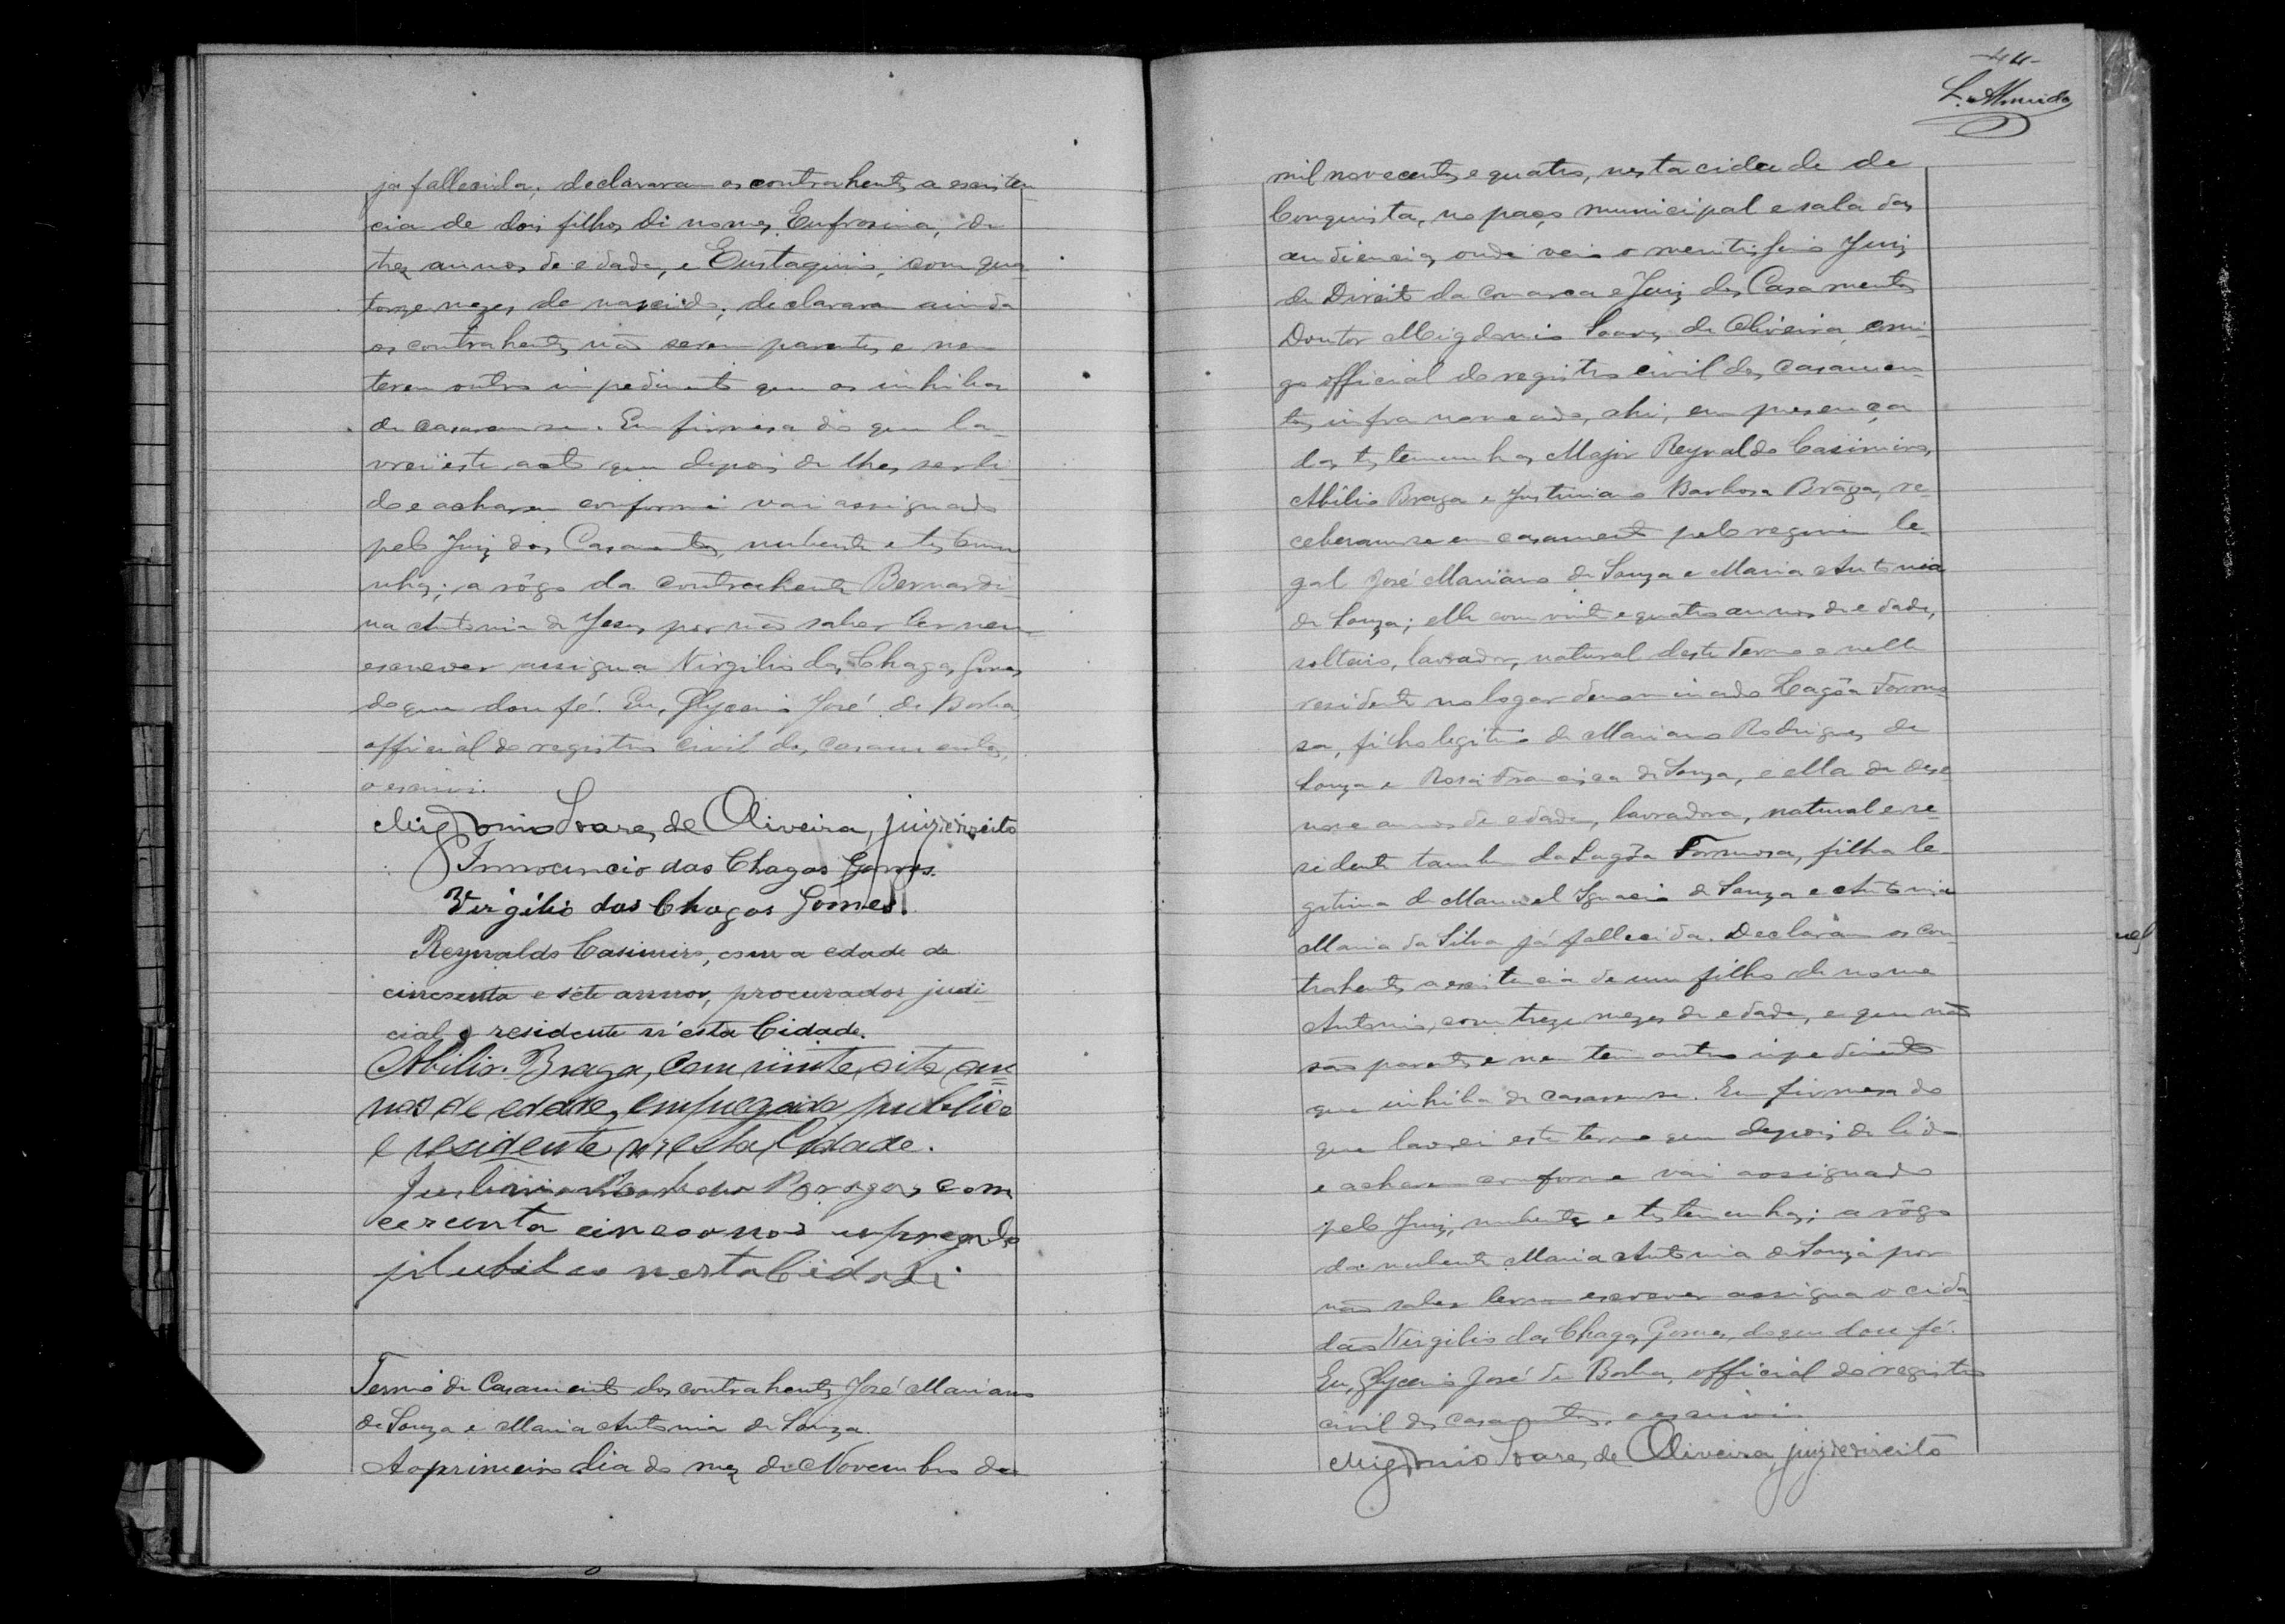 já fallecida; declararam os contrahentes a existen
cia de dois filhos di nomes Eufrosina, de
tres annos de edade, e Eustaquio, com qua
torze mezes de nascido; declararam ainda
os contrahentes não serem parentes e nem
terem outro impedimento que os inhiba
de casarem-se. Em firmesa do que la-
vrei este acto que depois de lhes ser li
do e acharem conforme vai assignado
pelo Juiz dos Casamentos, nubente e testemu
nhas; a rôgo da contrahente Bernardi
na Antonia de Jesus, por não saber ler nem
escrever assigna Virgilio das Chagas Gomes,
do que dou fé. Eu, Glycerio José de Borba,
official do registro civil dos casamentos,
o escrivi.
Migdonio Soares de Oliveira, juiz de direito
Innocencio das Chagas Gomes.
Virgilio das Chagas Gomes.
Reynaldo Casimiro, com a edade de
cincoenta e sete annos, procurador judi
cial e residente n'esta Cidade.
Abilio Braga, com vinte oito an
nos de edade, empregado publico
e residente n'esta Cidade.
Justiniano Barbosa Braga, com
cercenta cinco annos empregado
plubilco nesta Cidade
Termo de Casamento dos contrahentes José Mariano
de Souza e Maria Antonia de Souza.
Ao primeiro dia do mez de Novembro de
-44-
L. Almeida
mil novecentos e quatro, nesta cidade de
Conquista, no paço municipal e sala das
audiencias, onde veio o meritissimo Juiz
de Direito da Comarca e Juiz dos Casamentos
Doutor Migdonio Soares de Oliveira, comi-
go official do registro civil dos casamen-
tos infra nomeado, ahi, em presença
das testemunhas Major Reynaldo Casimiro,
Abilio Braga e Justiniano Barbosa Braga, re-
ceberam-se em casamento pelo regimen le-
gal José Mariano de Souza e Maria Antonia
de Souza; elle com vinte e quatro annos de edade,
solteiro, lavrador, natural deste Termo e nelle
residente no logar denominado Lagôa Formo
sa, filho legitimo de Mariano Rodrigues de
Souza e Rosa Francisca de Souza, e ella de deze
nove annos de edade, lavradora, natural e re-
sidente tambem da Lagôa Formosa, filha le-
gitima de Manoel Ignacio de Souza e Antonia
Maria da Silva já fallecida. Declaram os con-
trahentes a existencia de um filho de nome
Antonio, com treze mezes de edade, e que não
são parentes e nem tem outro impedimento
que inhiba de casarem-se. Em firmesa do
que lavrei este termo que depois de lido
e acharem conforme vai assignado
pelo Juiz, nubente e testemunhas; a rôgo
da nubente Maria Antonia de Souza por
não saber ler nem escrever assigna o cida
dão Virgilio das Chagas Gomes, do que dou fé.
Eu, Glycerio José de Borba, official do registro
civil dos casamentos, o escrivi
Migdonio Soares de Oliveira, juiz de direito